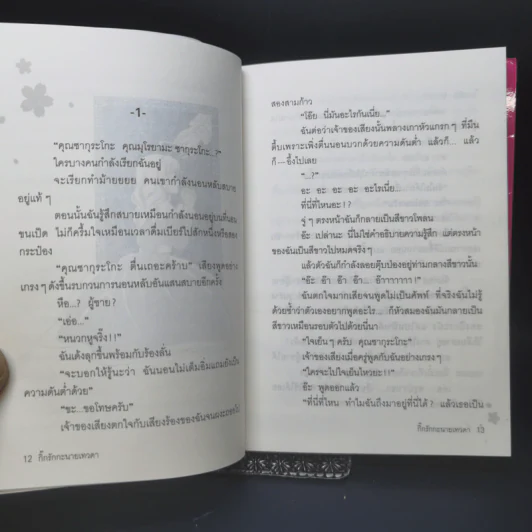 -1-
"คุณซากุระโกะ คุณมุโรยามะ ซากุระโกะ...?"
ใครบางคนกำลังเรียกฉันอยู่
จะเรียกทำม้ายยยย คนเขากำลังนอนหลับสบาย
อยู่แท้ๆ
ตอนนั้นฉันรู้สึกสบายเหมือนกำลังนอนอยู่บนที่นอน
ขนเป็ด ไม่ก็ครึ้มใจเหมือนเวลาดื่มเบียร์ไปสักหนึ่งหรือสอง
กระป๋อง
"คุณซากุระโกะ ตื่นเถอะคร้าบ" เสียงพูดอย่าง
เกรงๆ ดังขึ้นรบกวนการนอนหลับอันแสนสบายอีกครั้ง
หือ...? ผู้ชาย?
"เอ่อ..."
"หนวกหูจริ๊ง!!"
ฉันเด้งลุกขึ้นพร้อมกับร้องลั่น
"จะบอกให้รู้นะว่า ฉันนอนไม่เต็มอิ่มแถมยังเป็น
ความดันต่ำด้วย"
"ขะ...ขอโทษครับ"
เจ้าของเสียงตกใจกับเสียงร้องของฉันจนผงะถอยไป
12 กิ๊กรักกะนายเทวดา
สองสามก้าว
"โอ๊ย นี่มันอะไรกันเนี่ย..."
ฉันต่อว่าเจ้าของเสียงนั้นพลางเกาหัวแกรกๆ ที่มึน
ตึ้บเพราะเพิ่งตื่นนอนบวกด้วยความดันต่ำ แล้วก็... แล้ว
ก็—อึ้งไปเลย
"...?"
อะ อะ อะ อะ อะไรเนี่ย...
ที่นี่ที่ไหนอะ!?
จู่ๆ ตรงหน้าฉันก็กลายเป็นสีขาวโพลน
อ๊ะ เปล่านะ นี่ไม่ใช่คำอธิบายความรู้สึก แต่ตรงหน้า
ของฉันเป็นสีขาวไปหมดจริงๆ
แล้วตัวฉันก็กำลังลอยตุ๊บป่องอยู่ท่ามกลางสีขาวนั้น
"อ๊ะ อ๊า อ๊า อ๊า... อ๊าาาาาาาา!"
ฉันตกใจมากเสียจนพูดไม่เป็นศัพท์ ที่จริงฉันไม่รู้
ด้วยซ้ำว่าตัวเองอยากพูดอะไร ก็หัวสมองฉันมันกลายเป็น
สีขาวเหมือนรอบตัวไปด้วยนี่นา
"ใจเย็นๆ ครับ คุณซากุระโกะ"
เจ้าของเสียงเมื่อครู่พูดกับฉันอย่างเกรงๆ
"ใครจะไปใจเย็นไหวยะ!!"
อ๊ะ พูดออกแล้ว
"ที่นี่ที่ไหน ทำไมฉันถึงมาอยู่ที่นี่ได้? แล้วเธอเป็น
กิ๊กรักกะนายเทวดา 13